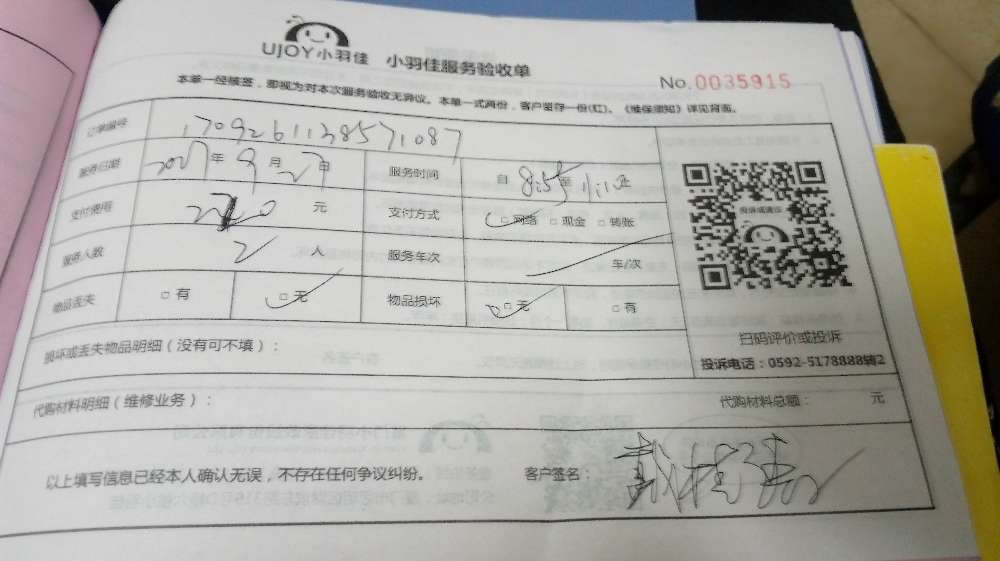 UJOY小羽佳 小羽佳服务验收单
No.0035915
本单一经核签，即视为对本次服务验收无异议。本单一式两份，客户留存一份(红)。《维保须知》详见背面。
订单编号 1709261138571087
服务日期 2017年9月27日 服务时间 自8:55至11:10止
支付费用 元 支付方式 □网络 □现金 □转账
服务人数 2人 服务车次 车/次
物品丢失 □有 □无 物品损坏 □无 □有
投诉或建议
扫码评价或投诉
投诉电话：0592-5178888转2
损坏或丢失物品明细（没有可不填）：
代购材料明细（维修业务）： 代购材料总额： 元
以上填写信息已经本人确认无误，不存在任何争议纠纷。 客户签名：